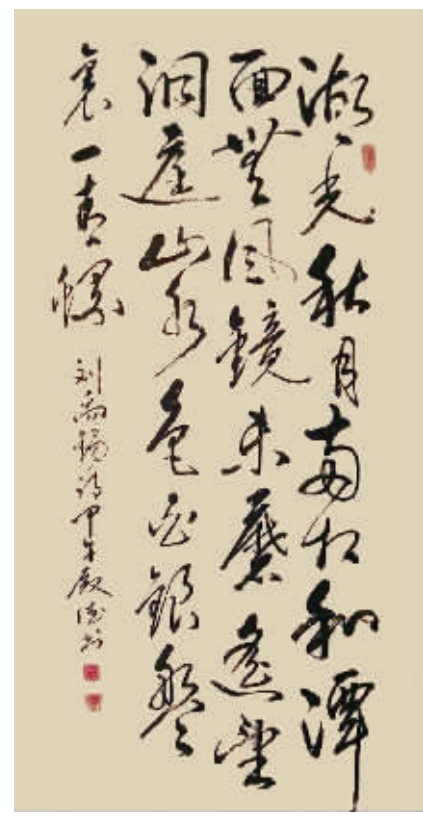 湖光秋月两相和潭
面無风鏡未磨遥望
洞庭山水色白銀盤
裏一青螺
刘禹锡诗甲午书